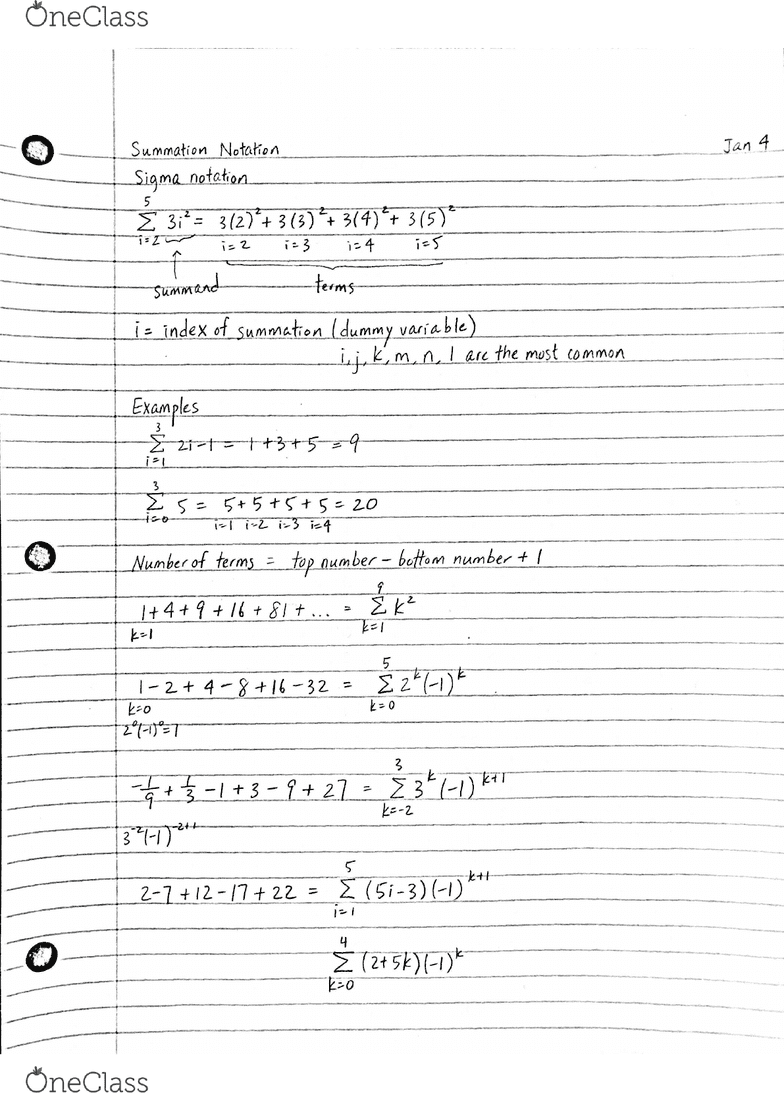 OneClass
Summation Notation Jan 4
Sigma notation
5
Σ 3i² = 3(2)² + 3(3)² + 3(4)² + 3(5)²
i=2 i=2 i=3 i=4 i=5
summand terms
i = index of summation (dummy variable)
i, j, k, m, n, l are the most common
Examples
3
Σ 2i-1 = 1+3+5 = 9
i=1
3
Σ 5 = 5+5+5+5 = 20
i=0 i=1 i=2 i=3 i=4
Number of terms = top number - bottom number + 1
9
1+4+9+16+81+... = Σ k²
k=1 k=1
5
1-2+4-8+16-32 = Σ 2^k (-1)^k
k=0 k=0
2⁰(-1)⁰=1
3
-1/9 + 1/3 - 1 + 3 - 9 + 27 = Σ 3^k (-1)^k+1
k=-2
3^-2 (-1)^-2+1
5
2-7+12-17+22 = Σ (5i-3)(-1)^k+1
i=1
4
Σ (2+5k)(-1)^k
k=0
OneClass